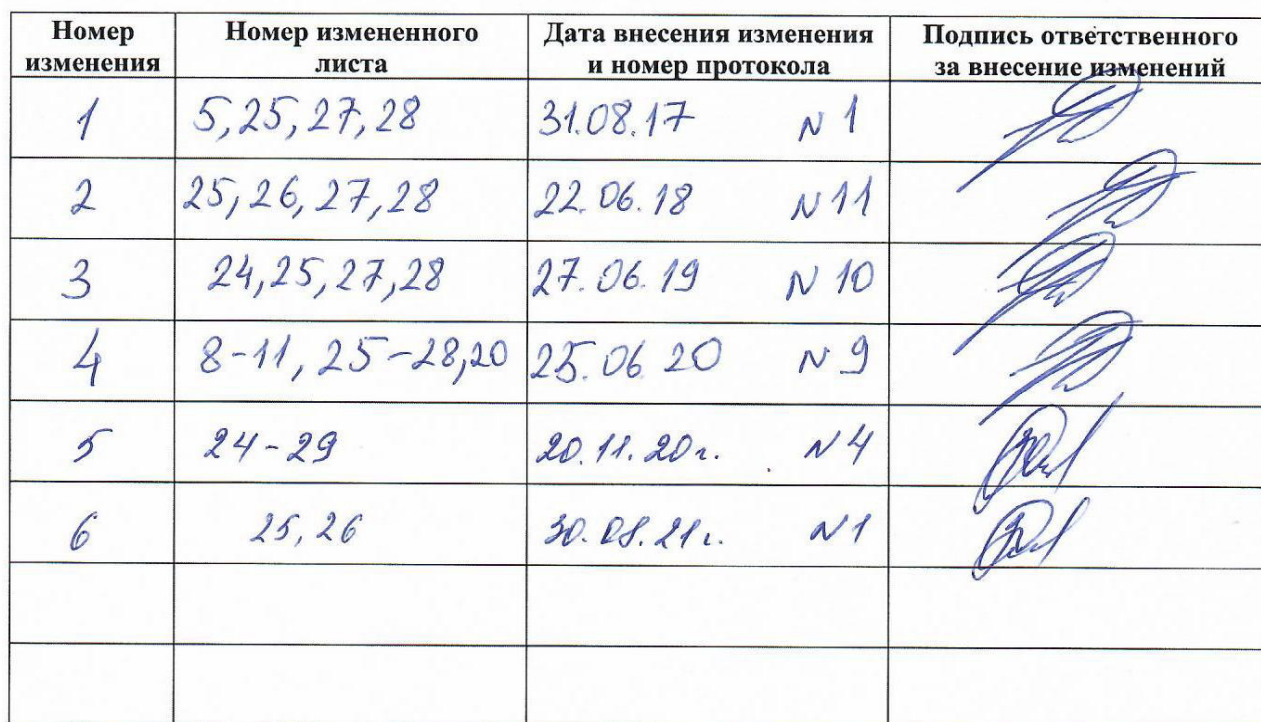 Номер изменения Номер измененного листа Дата внесения изменения и номер протокола Подпись ответственного за внесение изменений
1 5,25,27,28 31.08.17 N 1
2 25,26,27,28 22.06.18 N 11
3 24,25,27,28 27.06.19 N 10
4 8-11, 25-28,20 25.06 20 N 9
5 24-29 20.11.20г. N 4
6 25,26 30.08.21г. N 1